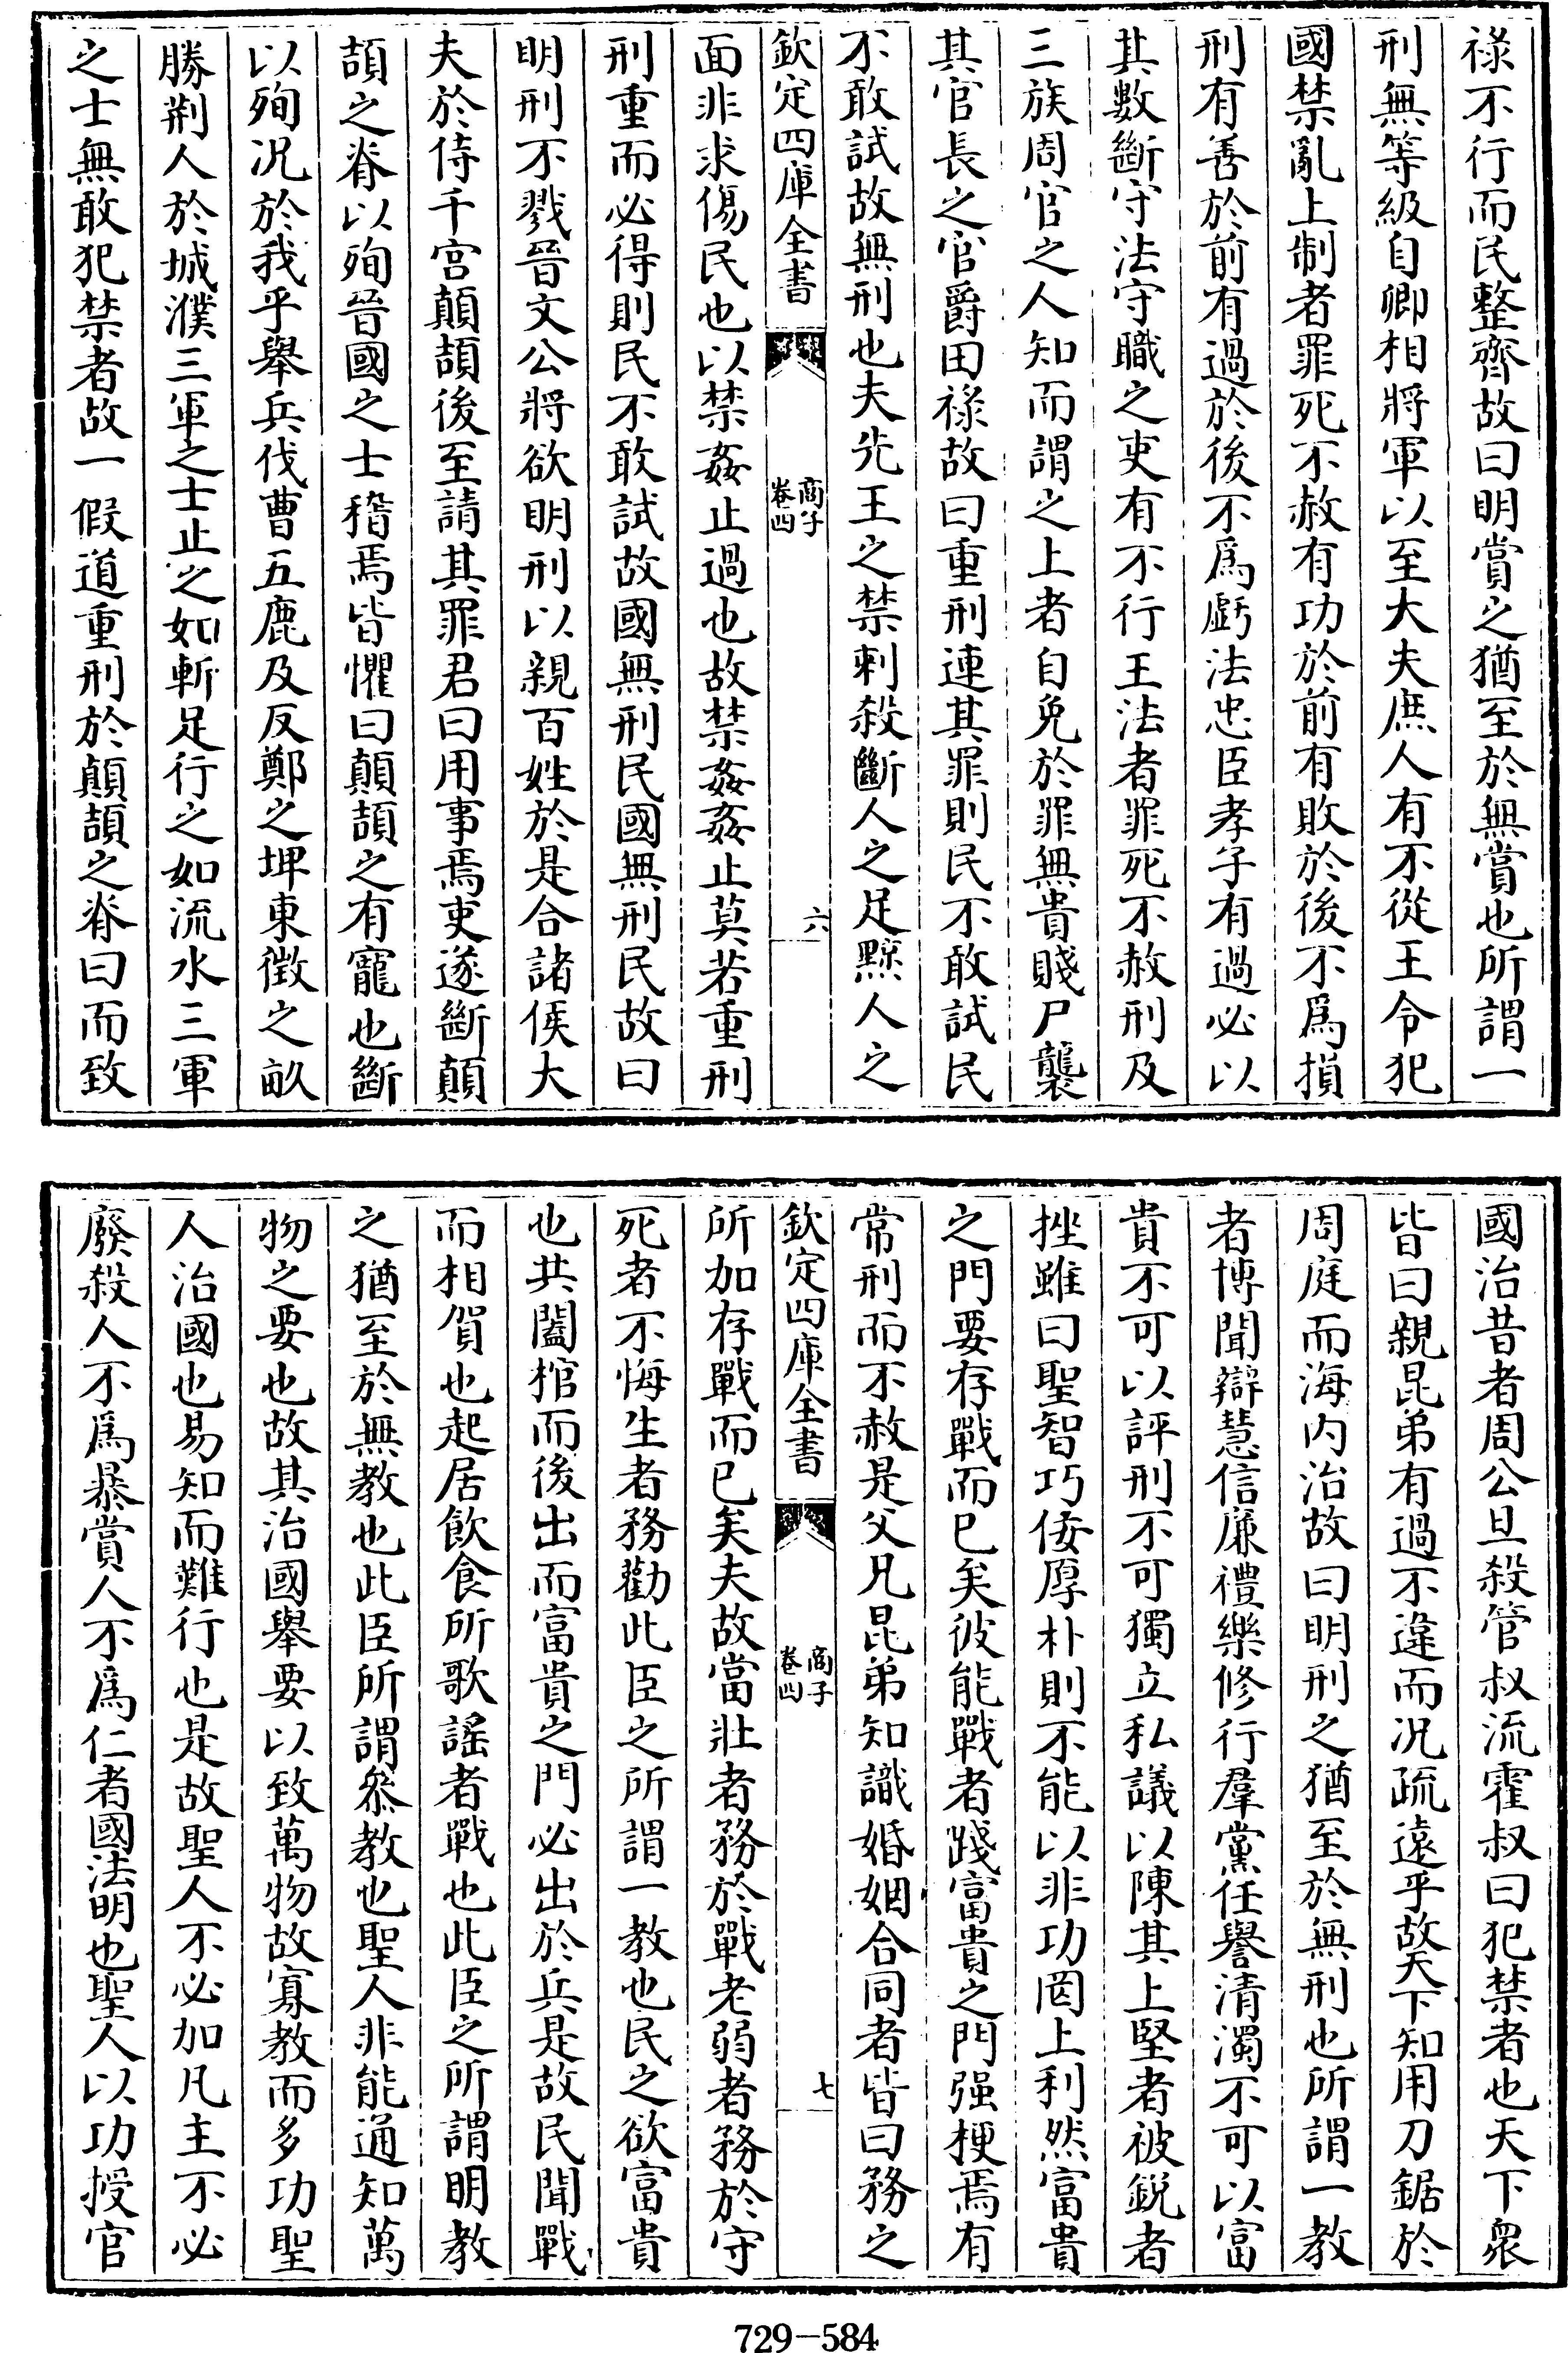 祿不行而民整齊故曰明賞之猶至於無賞也所謂一
刑無等級自卿相將軍以至大夫庶人有不從王令犯
國禁亂上制者罪死不赦有功於前有敗於後不爲損
刑有善於前有過於後不爲虧法忠臣孝子有過必以
其數斷守法守職之吏有不行王法者罪死不赦刑及
三族周官之人知而謂之上者自免於罪無貴賤尸襲
其官長之官爵田祿故曰重刑連其罪則民不敢試民
不敢試故無刑也夫先王之禁刺殺斷人之足黥人之
欽定四庫全書
商子
卷四
六
面非求傷民也以禁姦止過也故禁姦姦止莫若重刑
刑重而必得則民不敢試故國無刑民國無刑民故曰
明刑不戮晉文公將欲明刑以親百姓於是合諸侯大
夫於侍千宮顛頡後至請其罪君曰用事焉吏遂斷顛
頡之脊以殉晉國之士稽焉皆懼曰顛頡之有寵也斷
以殉况於我乎舉兵伐曹五鹿及反鄭之埤東徵之畝
勝荆人於城濮三軍之士止之如斬足行之如流水三軍
之士無敢犯禁者故一假道重刑於顛頡之脊曰而致
國治昔者周公旦殺管叔流霍叔曰犯禁者也天下衆
皆曰親昆弟有過不違而况疏遠乎故天下知用刀鋸於
周庭而海内治故曰明刑之猶至於無刑也所謂一教
者博聞辯慧信廉禮樂修行羣黨任譽清濁不可以富
貴不可以評刑不可獨立私議以陳其上堅者被鋭者
挫雖曰聖智巧佞厚朴則不能以非功罔上利然富貴
之門要存戰而已矣彼能戰者踐富貴之門强梗焉有
常刑而不赦是父兄昆弟知識婚姻合同者皆曰務之
欽定四庫全書
商子
卷四
七
所加存戰而已矣夫故當壯者務於戰老弱者務於守
死者不悔生者務勸此臣之所謂一教也民之欲富貴
也共闔棺而後出而富貴之門必出於兵是故民聞戰
而相賀也起居飲食所歌謠者戰也此臣之所謂明教
之猶至於無教也此臣所謂叅教也聖人非能通知萬
物之要也故其治國舉要以致萬物故寡教而多功聖
人治國也易知而難行也是故聖人不必加凡主不必
廢殺人不爲暴賞人不爲仁者國法明也聖人以功授官
729-584